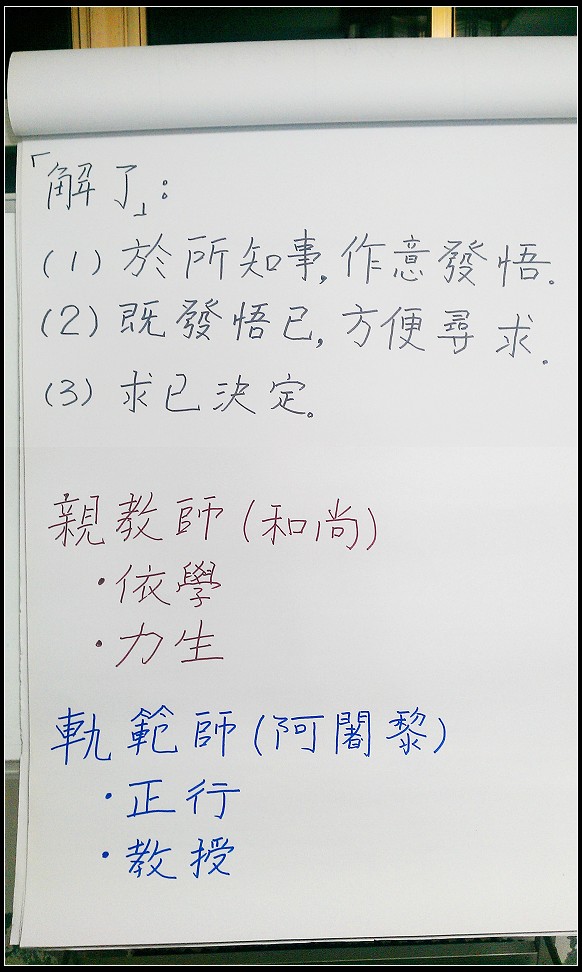 「解了」:
(1) 於所知事,作意發悟.
(2) 既發悟已,方便尋求.
(3) 求已決定。
親教師(和尚)
·依學
·力生
軌範師(阿闍黎)
·正行
·教授